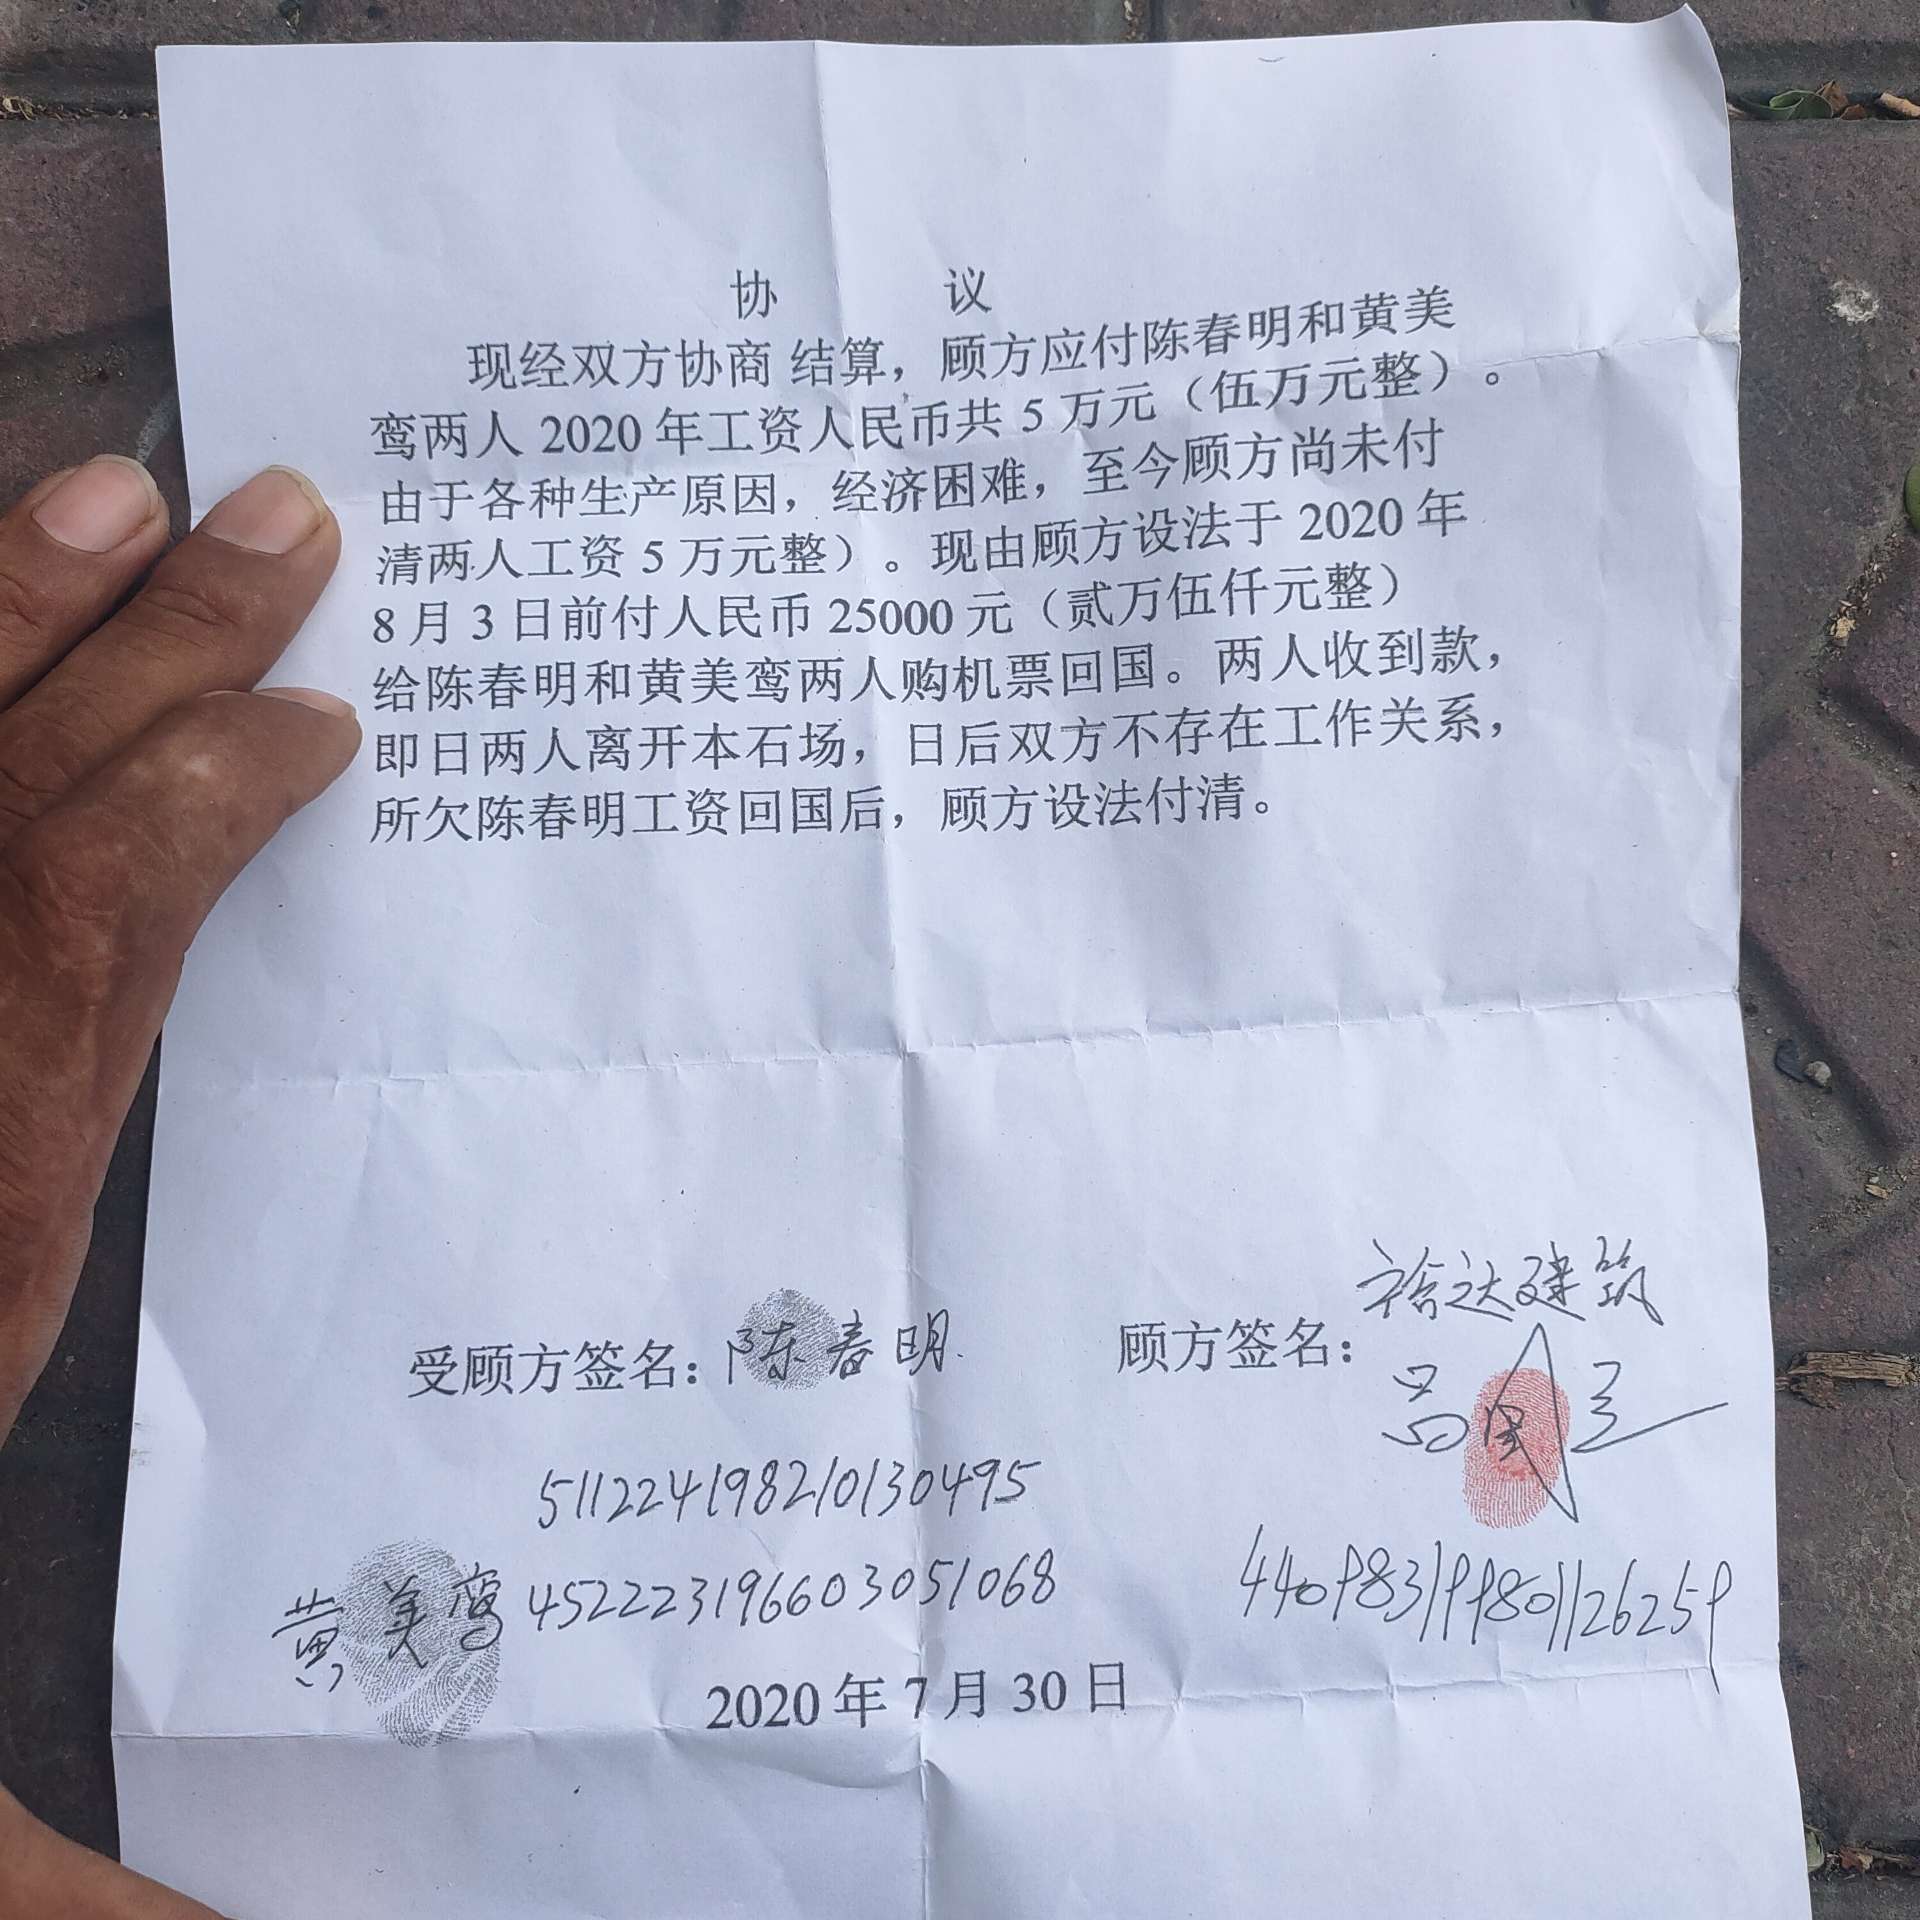 协 议
现经双方协商 结算，顾方应付陈春明和黄美
鸾两人 2020 年工资人民币共 5 万元（伍万元整）。
由于各种生产原因，经济困难，至今顾方尚未付
清两人工资 5 万元整）。现由顾方设法于 2020 年
8 月 3 日前付人民币 25000 元（贰万伍仟元整）
给陈春明和黄美鸾两人购机票回国。两人收到款，
即日两人离开本石场，日后双方不存在工作关系，
所欠陈春明工资回国后，顾方设法付清。
裕达建筑
受顾方签名：陈春明
顾方签名：
511224198210130495
黄美鸾 452223196603051068
440983199801126259
2020 年 7 月 30 日